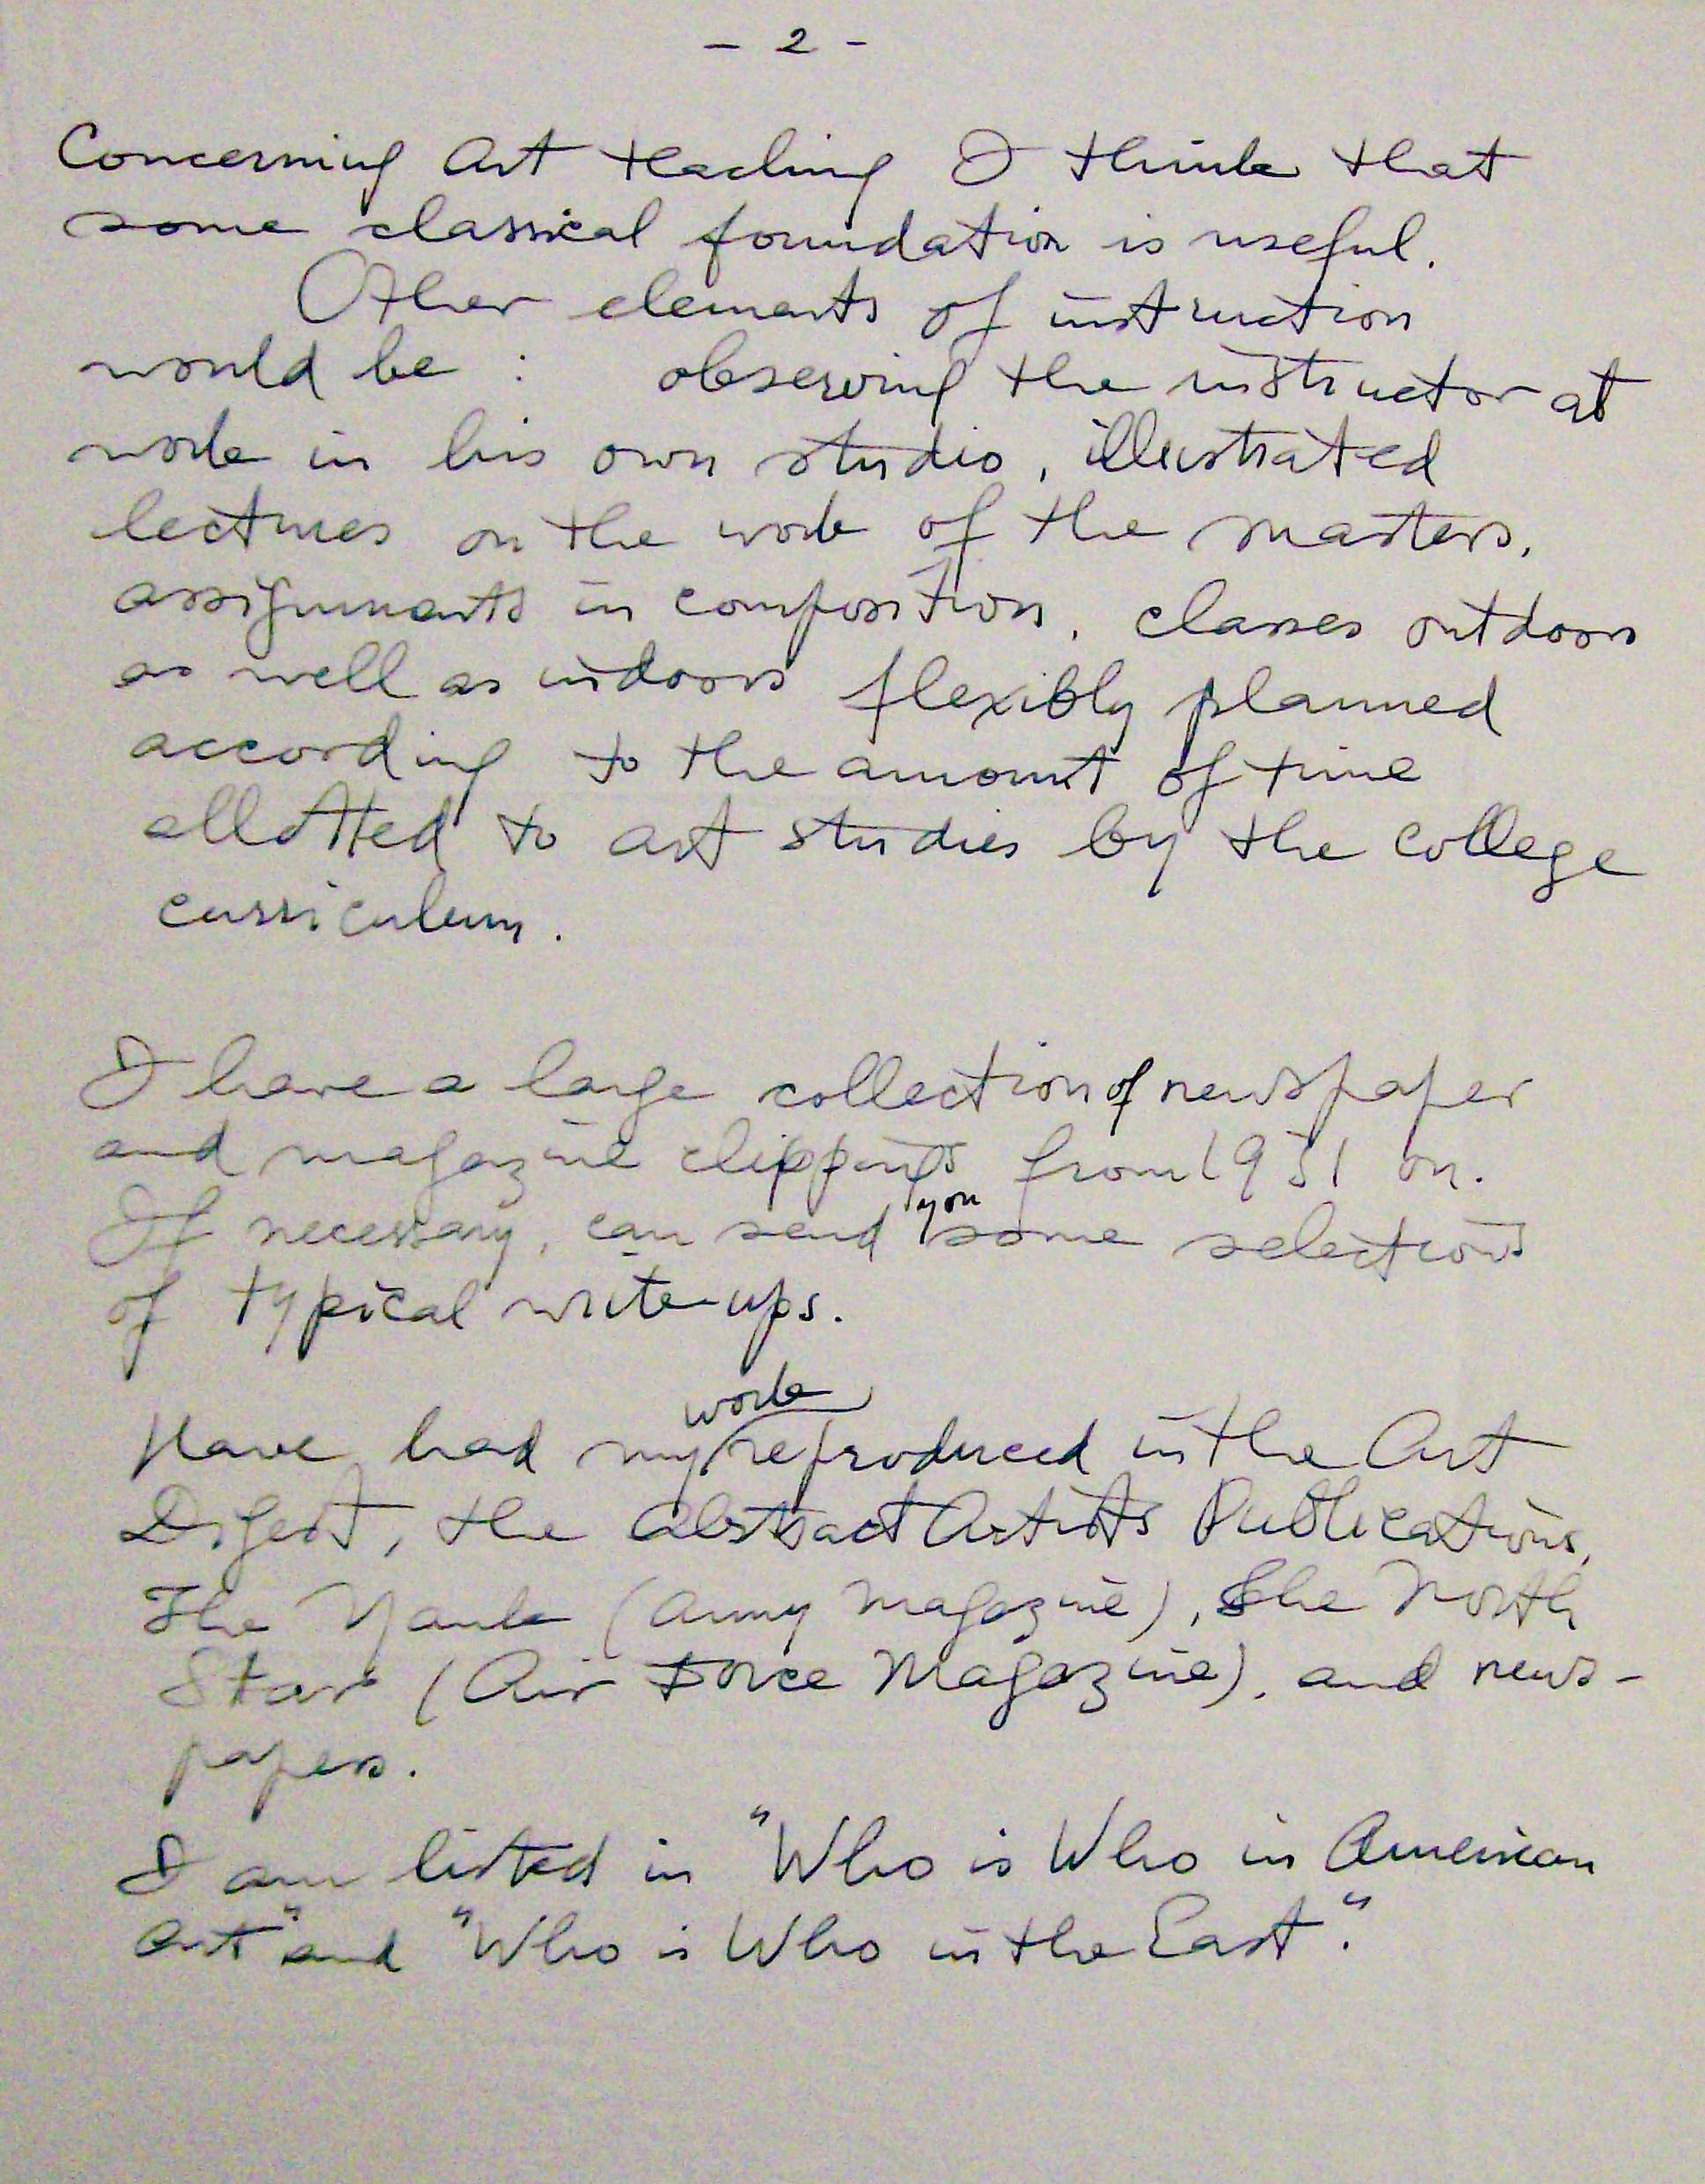 - 2 -
Concerning Art teaching I think that
some classical foundation is useful.
Other elements of instruction
would be : observing the instructor at
work in his own studio, illustrated
lectures on the work of the masters,
assignments in composition, classes outdoors
as well as indoors flexibly planned
according to the amount of time
allotted to art studies by the college
curriculum.
I have a large collection of newspaper
and magazine clippings from 1931 on.
If necessary, can send you some selections
of typical write-ups.
Have had my work reproduced in the Art
Digest, the Abstract Artists Publications,
The Yank (Army Magazine), The North
Star (Air Force Magazine), and news-
papers.
I am listed in "Who is Who in American
Art" and "Who is Who in the East".